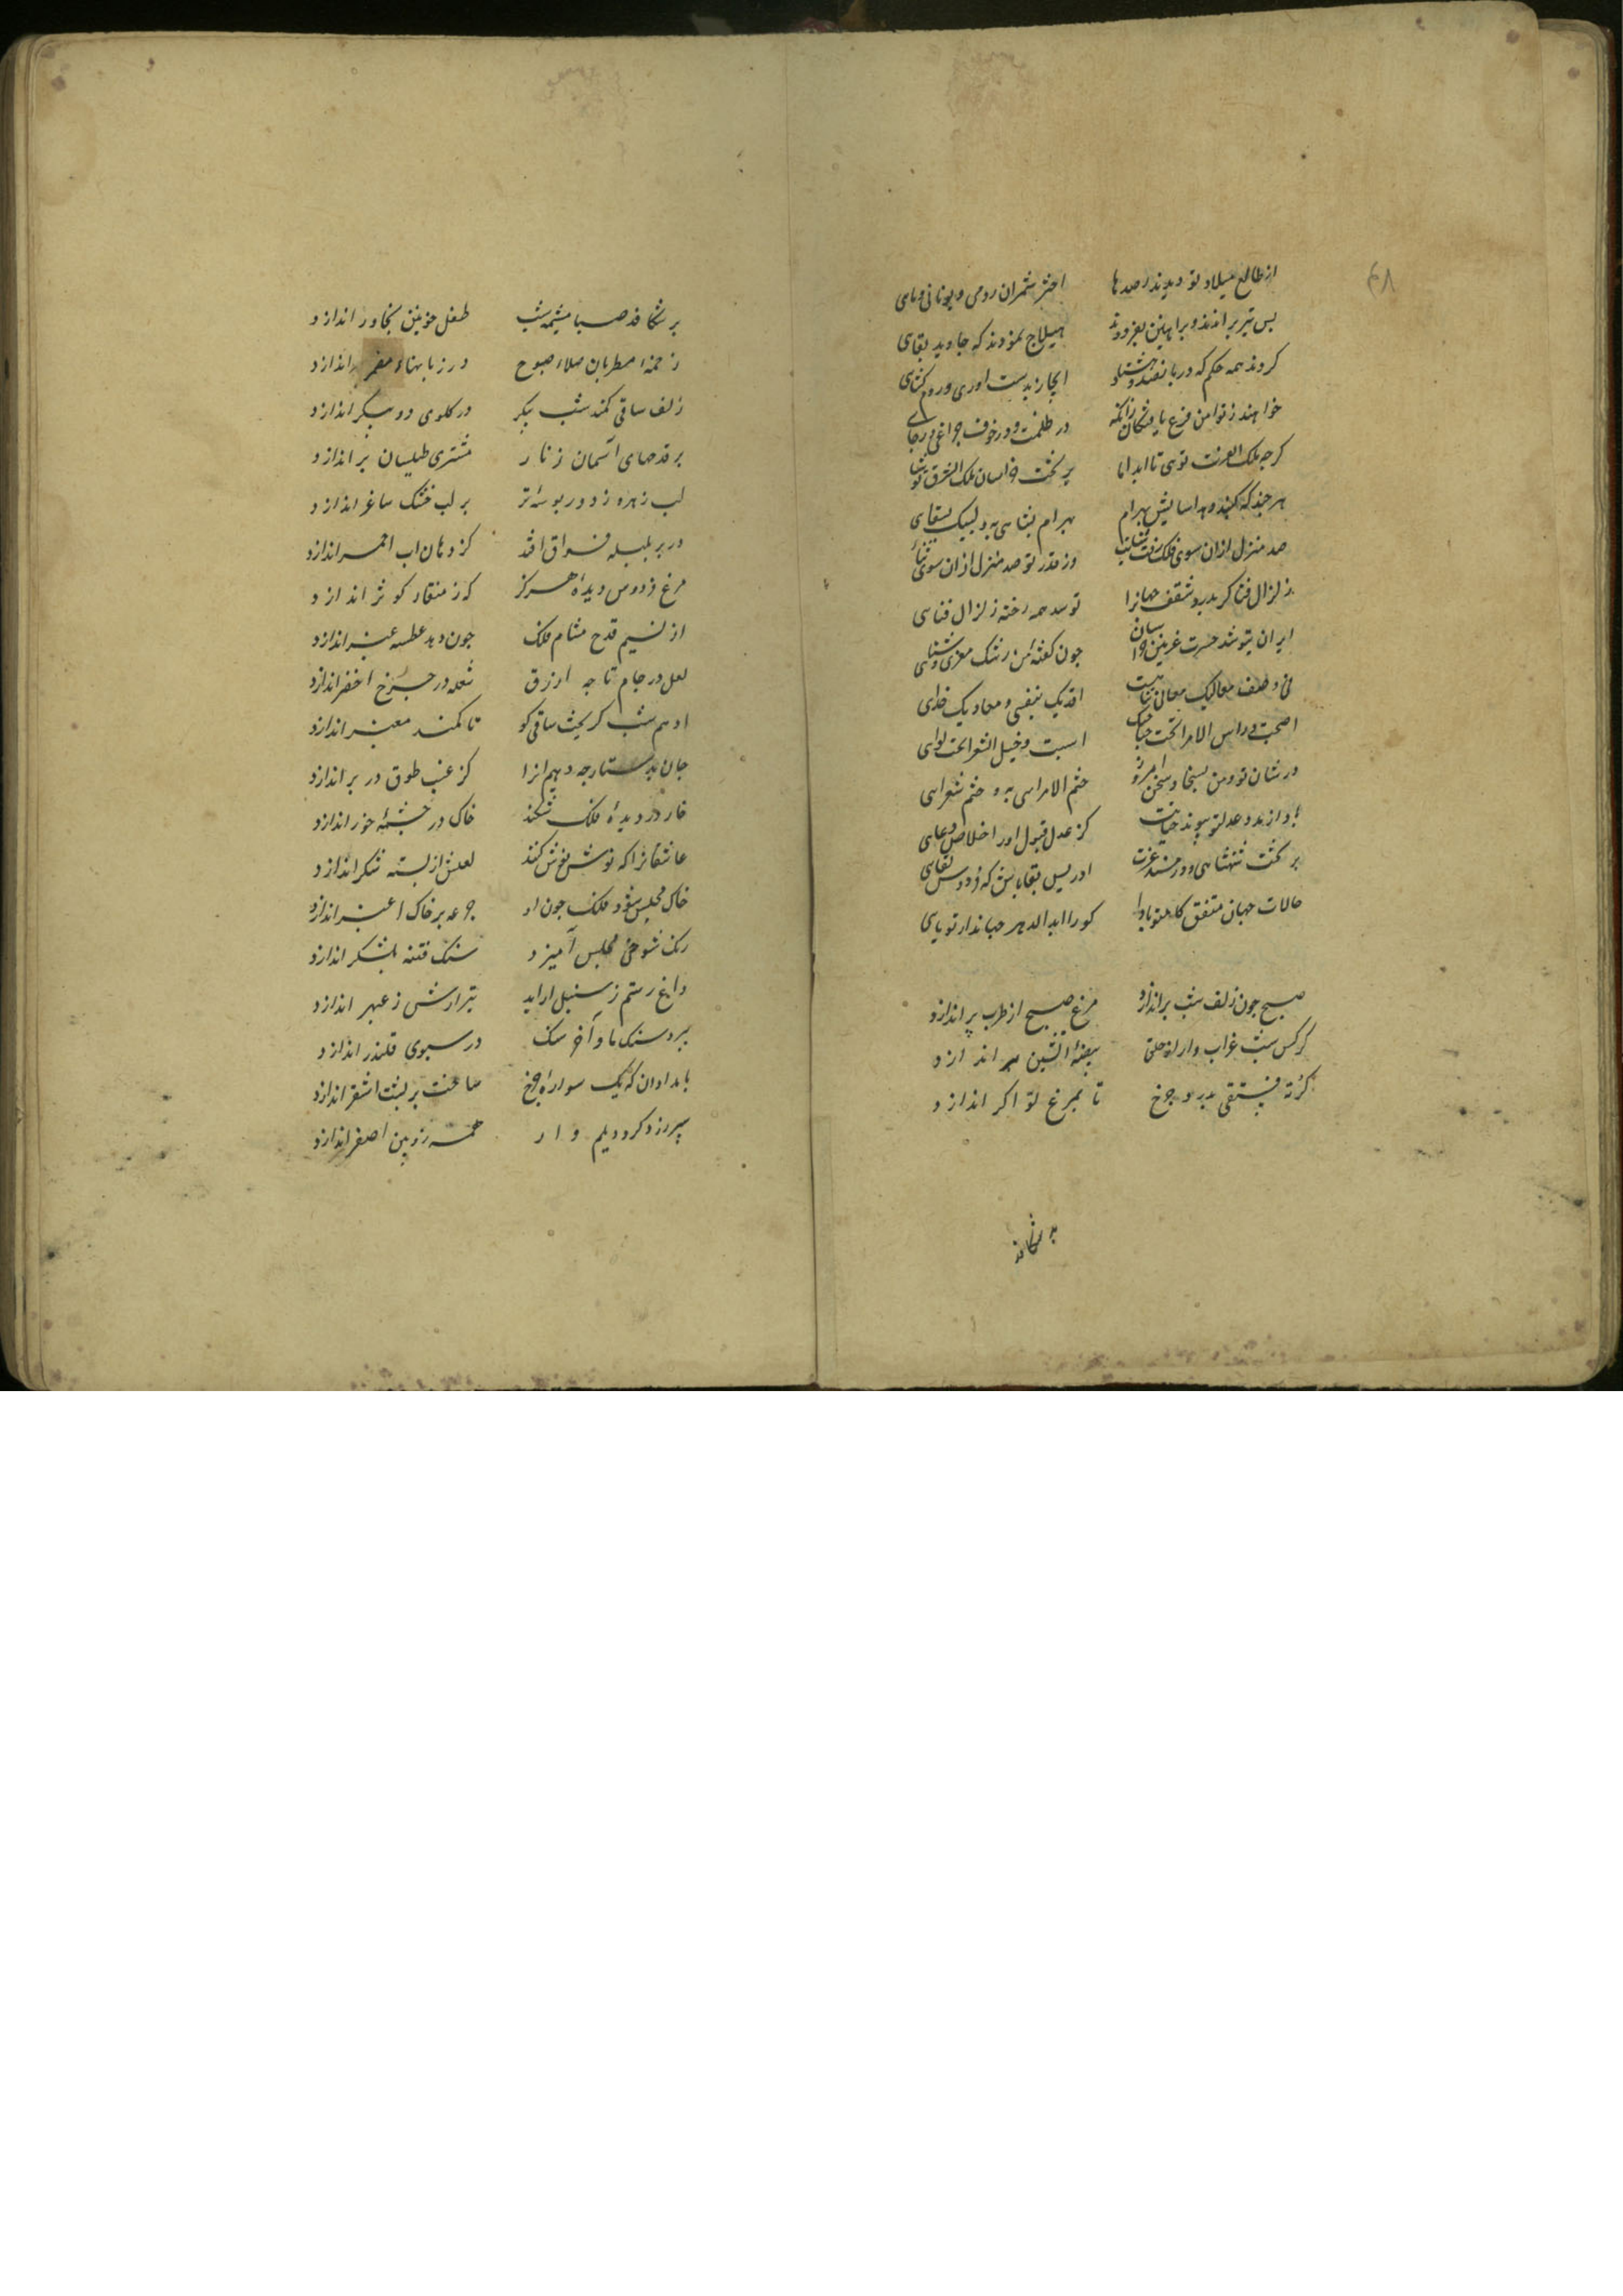 ۴۸
از طالع میلاد تو دیدند رصدها اختر شمران رومی و یونانی و مای
بس تیر براندند و براهین بفزودند هیلاج نمودند که جاوید بقای
کردند همه حکم که در پانصد و هشتاد ابخاز بدست اوری و روم کشای
خواهند ز تو امن و فزع یافتگان زانکه در ظلمت و در خوف چراغی و رجای
کرچه ملک الغرب توی تا ابد اما بر تخت خراسان ملک الشرق تو شای
هر چند که بهرام بهرام نه به و لیک بقای
صد منزل ازان سوی فلک رفت ثنایت وز قدر تو صد منزل ازان سوی ثنای
زلزال فنا کر بدرد سقف جهانرا تو سد همه رخنه زلزال فنای
ایران بتو شد حسرت غزنین و خراسان چون کفته من رشک معزی و سنای
معالیک معانی اقدیک بنفسی و معادیک فدای
اصبحت و راس الامرا تحت امسیت و خیل الشعرا تحت لوای
در شان تو و من بسخا و سخن امروز ختم الامرای به و ختم شعرای
باد از پدد عدل تو پیوند حیاتت کز عدل قبول اور اخلاص دعای
بر تخت شهنشاهی و در مسند عزت ادریس بقا باش که فردوس لقای
حالات جهان متفق کام تو بادا کورا ابد الدهر جهاندار تو پای
صبح چون زلف شب براندازد مرغ صبح از طرب پر اندازد
کرکس شب غراب وار از حلق بیضهٔ آتشین بر اندازد
کرتهٔ فستقی بدرد چرخ تا بمرغ نوا کر اندازد
برشکافد
برشکافد صبا مشیمه شب طفل خونین بخاور اندازد
زخمه مطربان صلاء صبوح در زبانهاء مضمر اندازد
زلف ساقی کمند شب پیکر در کلوی دو پیکر اندازد
بر قدحهای آسمان زنار مشتری طیلسان بر اندازد
لب زهره ز دور بوسهٔ تر بر لب خشک ساغر اندازد
در بر بلبله فواق افتد کز دهان اب احمر اندازد
مرغ فردوس دیدهٔ هرکز که ز منقار کوثر اندازد
از نسیم قدح مشام فلک چون دهد عطسه عنبر اندازد
لعل در جام تا چه ازرق شعله در چرخ اخضر اندازد
ادهم شب کریخت ساقی کو تا کمند معنبر اندازد
جان بدستارچه دهیم انرا کز غبب طوق در بر اندازد
خار در دیدهٔ فلک شکند خاک در چشمهٔ خور اندازد
عاشقانرا که نوش نوش کند لعلش از پسته شکر اندازد
خاک مجلس شود فلک چون او جرعه بر خاک اغبر اندازد
رنک شوخی بمجلس آمیزد سنک فتنه بلشکر اندازد
داغ رستم ز سنبل اراید تیر ارش ز عبهر اندازد
ببرد سنک ما و آخر سنک در سبوی قلندر اندازد
بامدادان که یک سواره چرخ ساخت بر پشت اشقر اندازد
سپر زرد کرد و دیلم وار همه زوبین اصفر اندازد